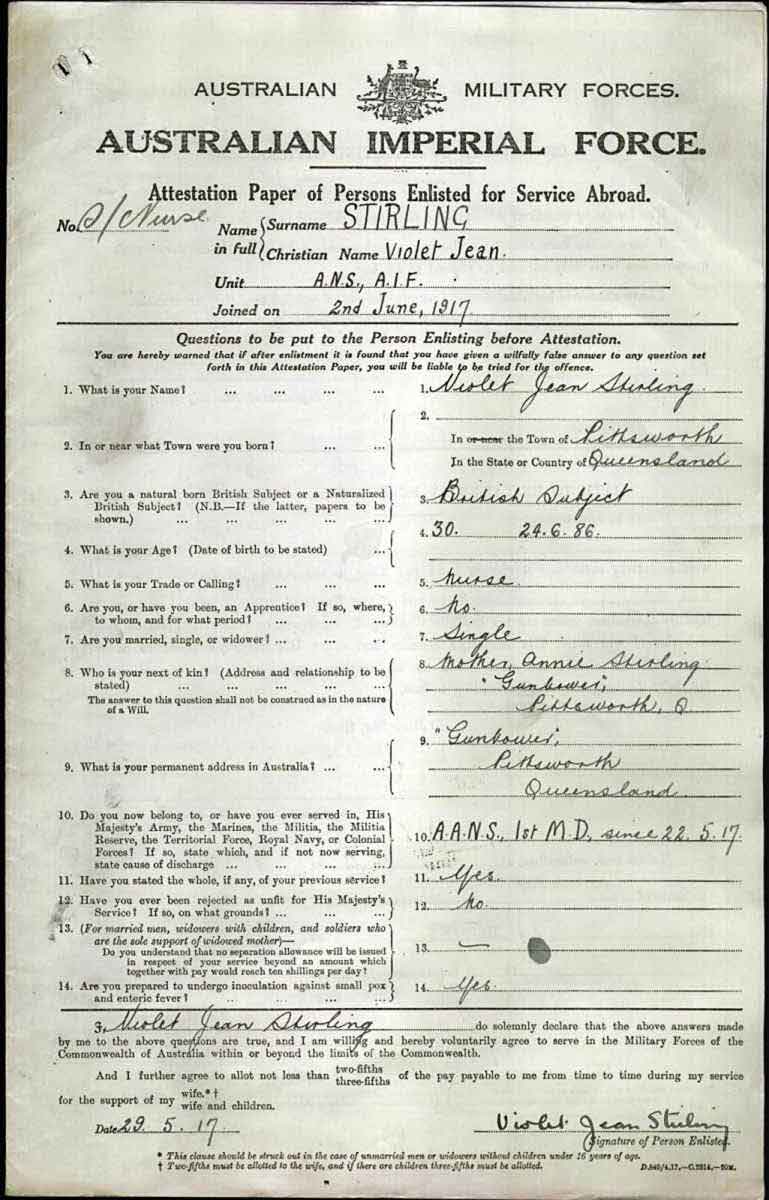 AUSTRALIAN MILITARY FORCES.
AUSTRALIAN IMPERIAL FORCE.
Attestation Paper of Persons Enlisted for Service Abroad.
No. S/Nurse Name in full Surname STIRLING
Christian Name Violet Jean.
Unit A.N.S., A.I.F.
Joined on 2nd June, 1917
Questions to be put to the Person Enlisting before Attestation.
You are hereby warned that if after enlistment it is found that you have given a wilfully false answer to any question set
forth in this Attestation Paper, you will be liable to be tried for the offence.
1. What is your Name? ... ... ... ... 1. Violet Jean Stirling.
2.
2. In or near what Town were you born? ... ... In or near the Town of Pittsworth
In the State or Country of Queensland
3. Are you a natural born British Subject or a Naturalized
British Subject? (N.B.—If the latter, papers to be
shown.) ... ... ... ... ... 3. British Subject
4. What is your Age? (Date of birth to be stated) ... 4. 30. 24.6.86.
5. What is your Trade or Calling? ... ... ... 5. Nurse.
6. Are you, or have you been, an Apprentice? If so, where,
to whom, and for what period? ... ... ... 6. No.
7. Are you married, single, or widower? ... ... ... 7. Single
8. Who is your next of kin? (Address and relationship to be
stated) ... ... ... ... ... 8. Mother, Annie Stirling
"Gunbower",
Pittsworth, Q
The answer to this question shall not be construed as in the nature
of a Will.
9. What is your permanent address in Australia? ... ... 9. "Gunbower",
Pittsworth
Queensland.
10. Do you now belong to, or have you ever served in, His
Majesty's Army, the Marines, the Militia, the Militia
Reserve, the Territorial Force, Royal Navy, or Colonial
Forces? If so, state which, and if not now serving,
state cause of discharge ... ... ... ... 10. A.A.N.S., 1st M.D., since 22.5.17.
11. Have you stated the whole, if any, of your previous service? 11. Yes.
12. Have you ever been rejected as unfit for His Majesty's
Service? If so, on what grounds? ... ... ... 12. No.
13. (For married men, widowers with children, and soldiers who
are the sole support of widowed mother)—
Do you understand that no separation allowance will be issued
in respect of your service beyond an amount which
together with pay would reach ten shillings per day? 13. —
14. Are you prepared to undergo inoculation against small pox
and enteric fever? ... ... ... ... 14. Yes.
I, Violet Jean Stirling do solemnly declare that the above answers made
by me to the above questions are true, and I am willing and hereby voluntarily agree to serve in the Military Forces of the
Commonwealth of Australia within or beyond the limits of the Commonwealth.
And I further agree to allot not less than two-fifths three-fifths of the pay payable to me from time to time during my service
for the support of my wife.*† wife and children.
Date 29.5.17. Violet Jean Stirling
Signature of Person Enlisted.
* This clause should be struck out in the case of unmarried men or widowers without children under 16 years of age.
† Two-fifths must be allotted to the wife, and if there are children three-fifths must be allotted.